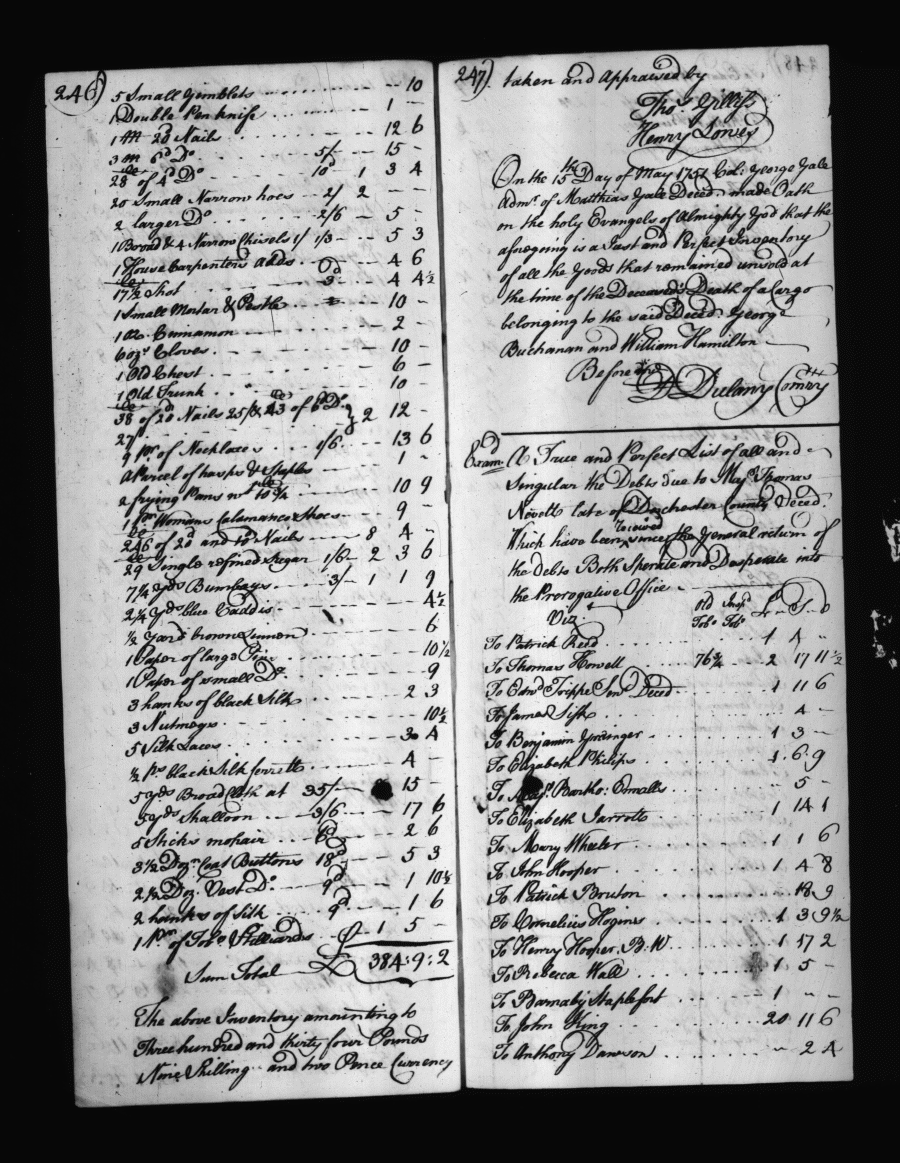 246)
5 Small Gimblets 10
1 Double Penknife 1 -
1 m 2d Nails 12 6
3 m 6d Do 5/- 15 -
28 of 4d Do 10d 1 3 4
20 Small Narrow hoes 2/ 2 - -
2 larger Do 2/6 - 5 -
1 Broad & 4 Narrow Chisels 1/ 1/3 - 5 3
1 House Carpenters adds 4 6
17½ Shot 3d 4 4½
1 Small Mortar & Pestle 10 -
Cinnamon 2 -
6 ozs Cloves 10 -
1 Old Chest 6 -
1 Old Trunk 10 -
38 of 20d Nails 25/8 23 of 6d Do
27 2 12 -
9 of Necklaces 1/6 13 6
A Parcel of hasps & Staples 1 -
2 frying Pans wt 10¾ 10 9
1 pr Womans Calamanco Shoes 9 -
246 of 20d and 10d Nails 8 4 -
29 Single refined Sugar 1/6 2 3 6
7¼ yds Bumbays 3/- 1 1 9
2¼ yds blue Caddis 4½
½ yard brown Linnen 6
1 Paper of large Pins 10½
1 Paper of small Do 9
3 hanks of black Silk 2 3
3 Nutmegs 10½
5 Silk Laces 4
½ ps black Silk ferrett 4 -
5 yds Broad Cloth at 35/- 15 -
5 yds Shalloon 3/6 17 6
5 Sticks mohair 6d 2 6
3½ Dozn Coat Buttons 18d 5 3
2½ Doz. Vest Do 9d 1 10½
2 hanks of Silk 9d 1 6
1 Pr of Tobo Stilliards 1 5 -
Sum Total £ 384:9:2
The above Inventory amounting to
Three hundred and thirty four Pounds
Nine Shilling and two Pence Currency
247)
taken and Appraised by
Thos Gilliss
Henry Lowes
On the 15th Day of May 1751 Col: George Gale
Admr of Matthias Gale Deced. made Oath
on the holy Evangels of Almighty God that the
aforegoing is a Just and Perfect Inventory
of all the Goods that remained unsold at
the time of the Deceaseds Death of a Cargo
belonging to the said Deced. George
Buchanan and William Hamilton
Before
D Dulany Comry
Examd A True and Perfect List of all and
Singular the Debts due to Majr Thomas
Nevett late of Dorchester County Deced.
Which have been received since the General return of
the debts Both Sperate and Desperate into
the Prerogative Office
Viz.t Old Tobo Inspd Tobo £ S D
To Patrick Reed 1 4 -
To Thomas Howell 76¾ 2 17 11½
To Edwd Trippe Senr Deced. 1 11 6
To James Sisk 4 -
To Benjamin Granger 1 3 -
To Elizabeth Philips 1 6 9
To Majr. Bartho: Ennalls 5 -
To Elizabeth Jarrott 1 14 1
To Mary Wheeler 1 1 6
To John Hooper 1 4 8
To Patrick Bruton 18 9
To Cornelius Hogins 1 3 9½
To Henry Hooper, B:W 1 17 2
To Rebecca Wall 1 5 -
To Barnaby Staplefort 1 - -
To John King 20 11 6
To Anthony Dawson 2 4